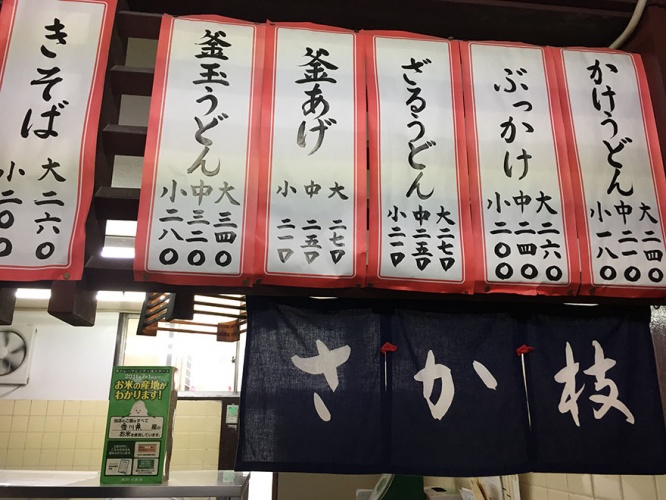 かけうどん
大二四〇
中二一〇
小一八〇
ぶっかけ
大二六〇
中二四〇
小二〇〇
ざるうどん
大二七〇
中二五〇
小二一〇
釜あげ
大二七〇
中二五〇
小二一〇
釜玉うどん
大三四〇
中三二〇
小二八〇
きそば
大二六〇
小二〇〇
さか枝
お米の産地が
わかります!
香川県 産の
お米を使用しています。